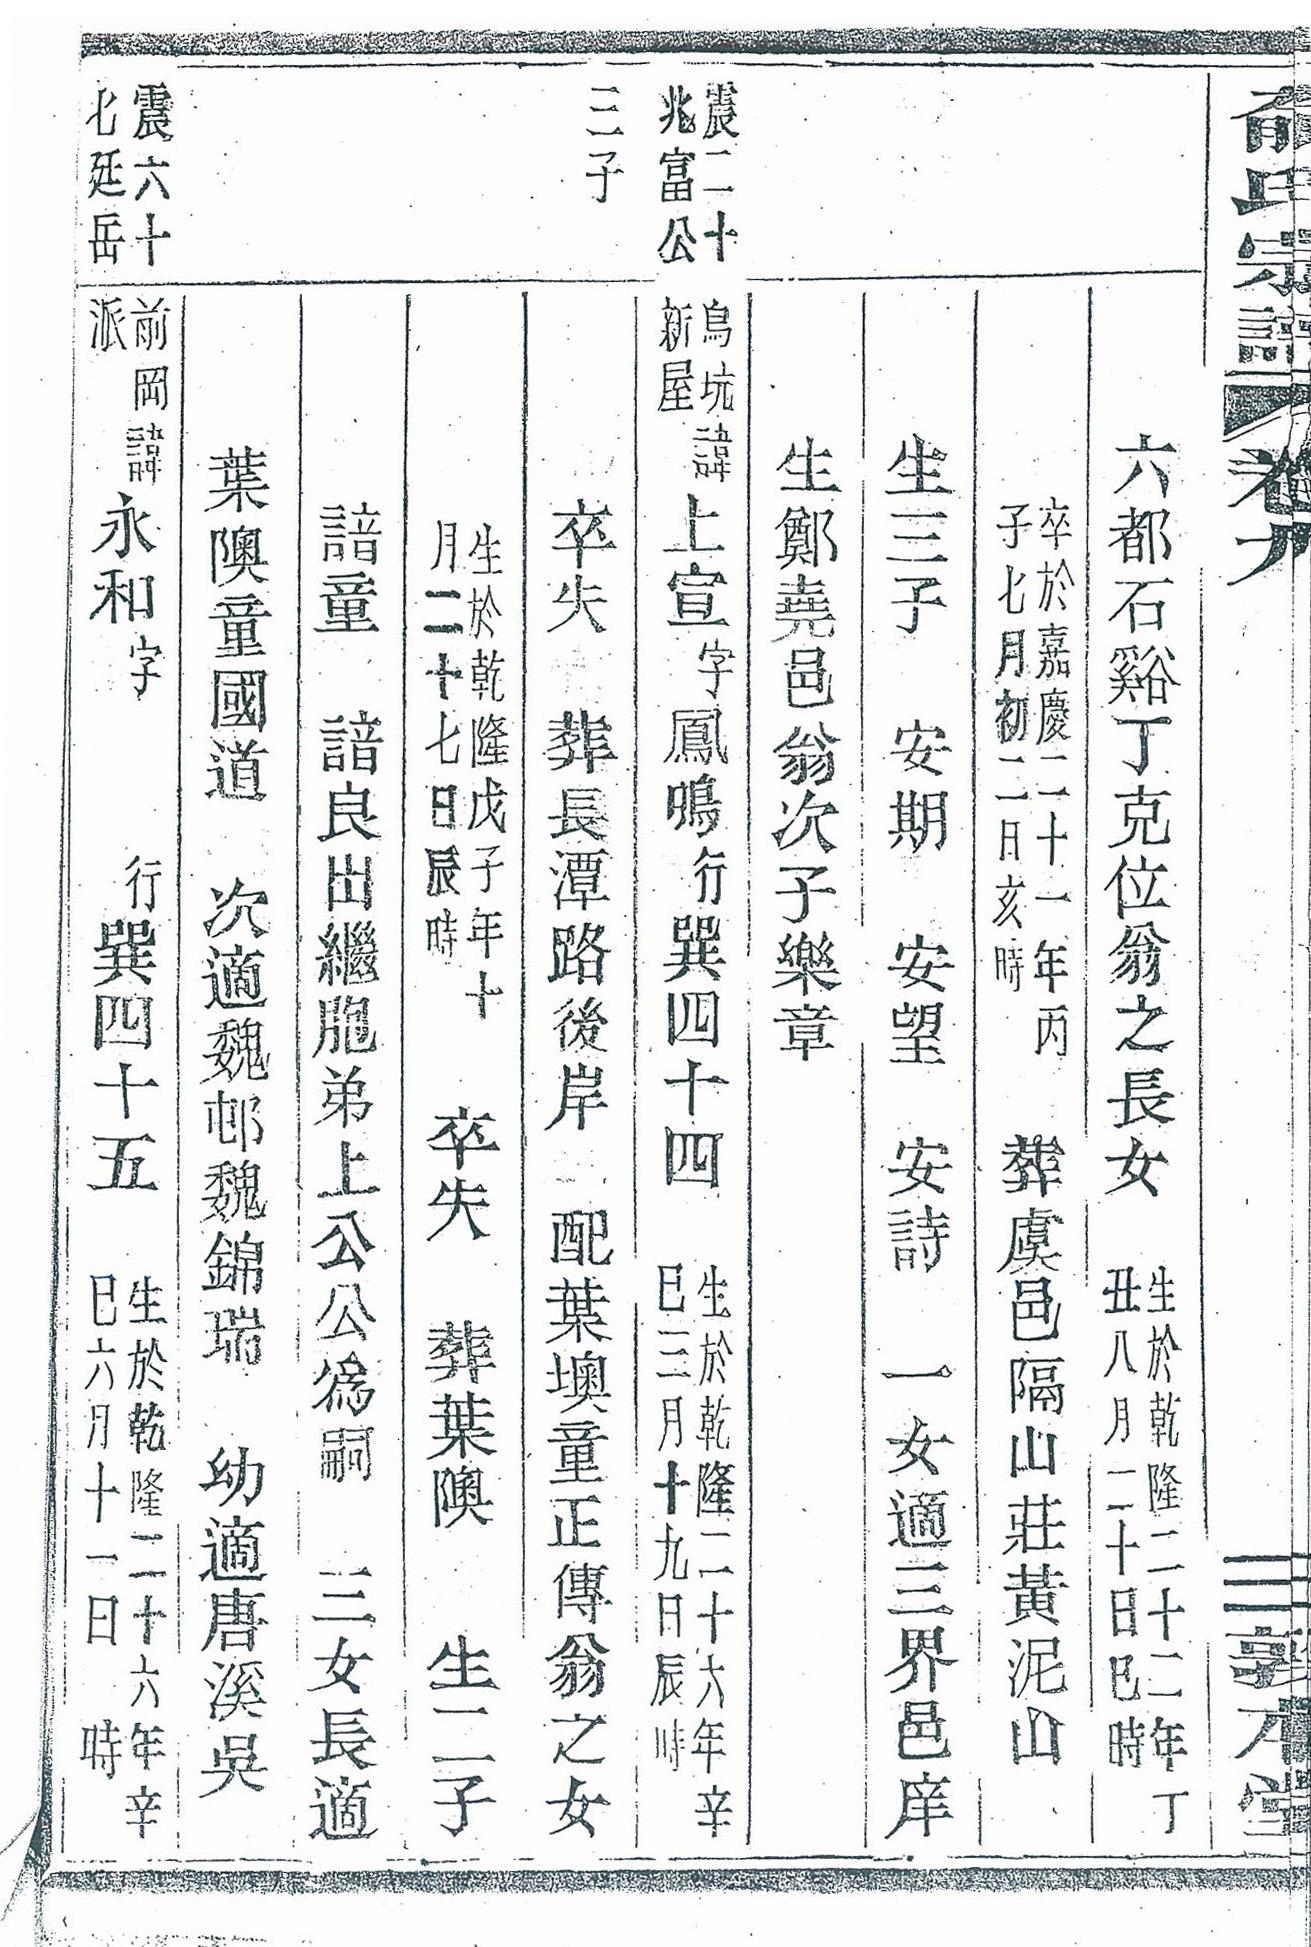 氏宗譜 卷九 三 敦本堂
六都石谿丁克位翁之長女 生於乾隆二十二年丁丑八月二十日巳時
卒於嘉慶二十一年丙子七月初二日亥時 葬虞邑隔山莊黃泥山
生三子 安期 安望 安詩 一女適三界邑庠
生鄭堯邑翁次子樂章
震二十兆富公 烏坑新屋 諱上宣字鳳鳴行巽四十四 生於乾隆二十六年辛巳三月十九日辰時
三子 卒失 葬長潭路後岸 配葉墺童正傳翁之女
生於乾隆戊子年十月二十七日辰時 卒失 葬葉隩 生二子
諳童 諳良出繼胞弟上公公為嗣 三女長適
葉隩童國道 次適魏邨魏錦瑞 幼適唐溪吳
震六十七廷岳 前岡派 諱永和字 行巽四十五 生於乾隆二十六年辛巳六月十一日 時